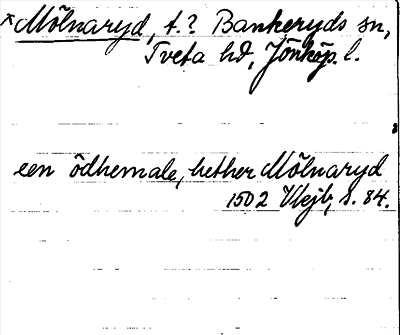 ×Mölnaryd, t.? Bankeryds sn,
Tveta hd, Jönköp. l.
een ödhemale, hether Mölnaryd
1502 Vlejb, s. 84.